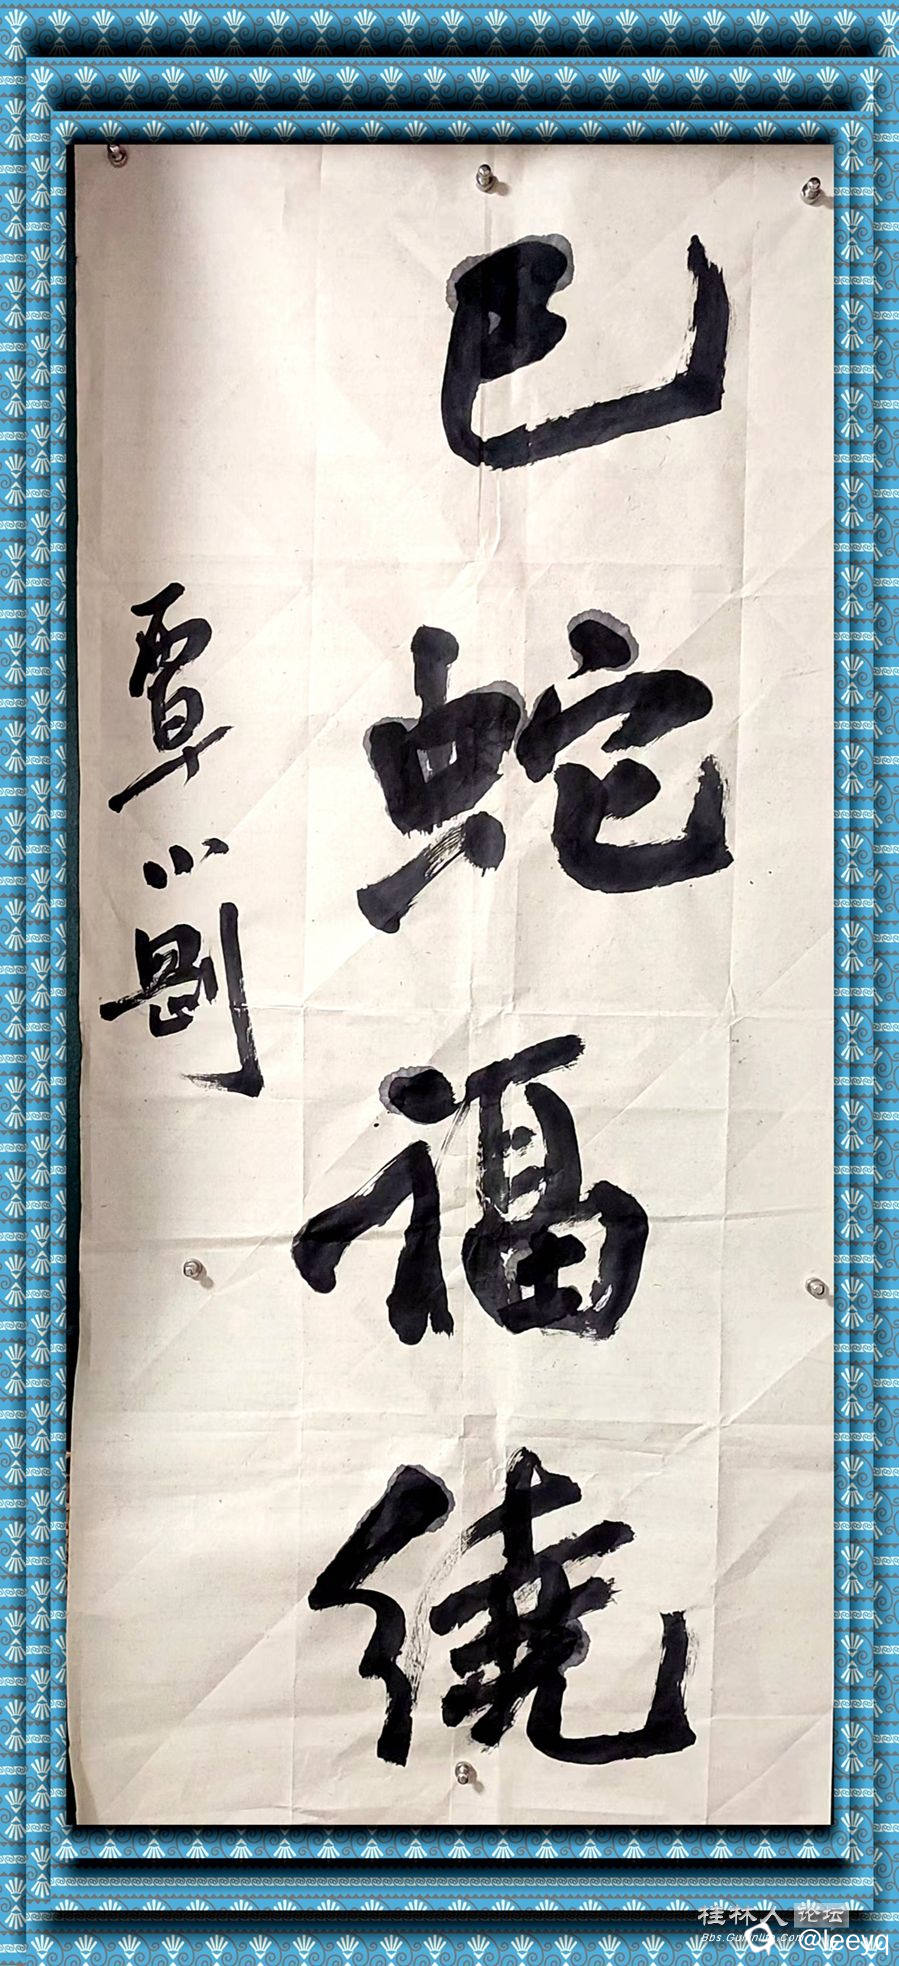 巳蛇福绕
覃小剛
桂林人论坛
Bbs.Guilinlife.Com
@leeyq